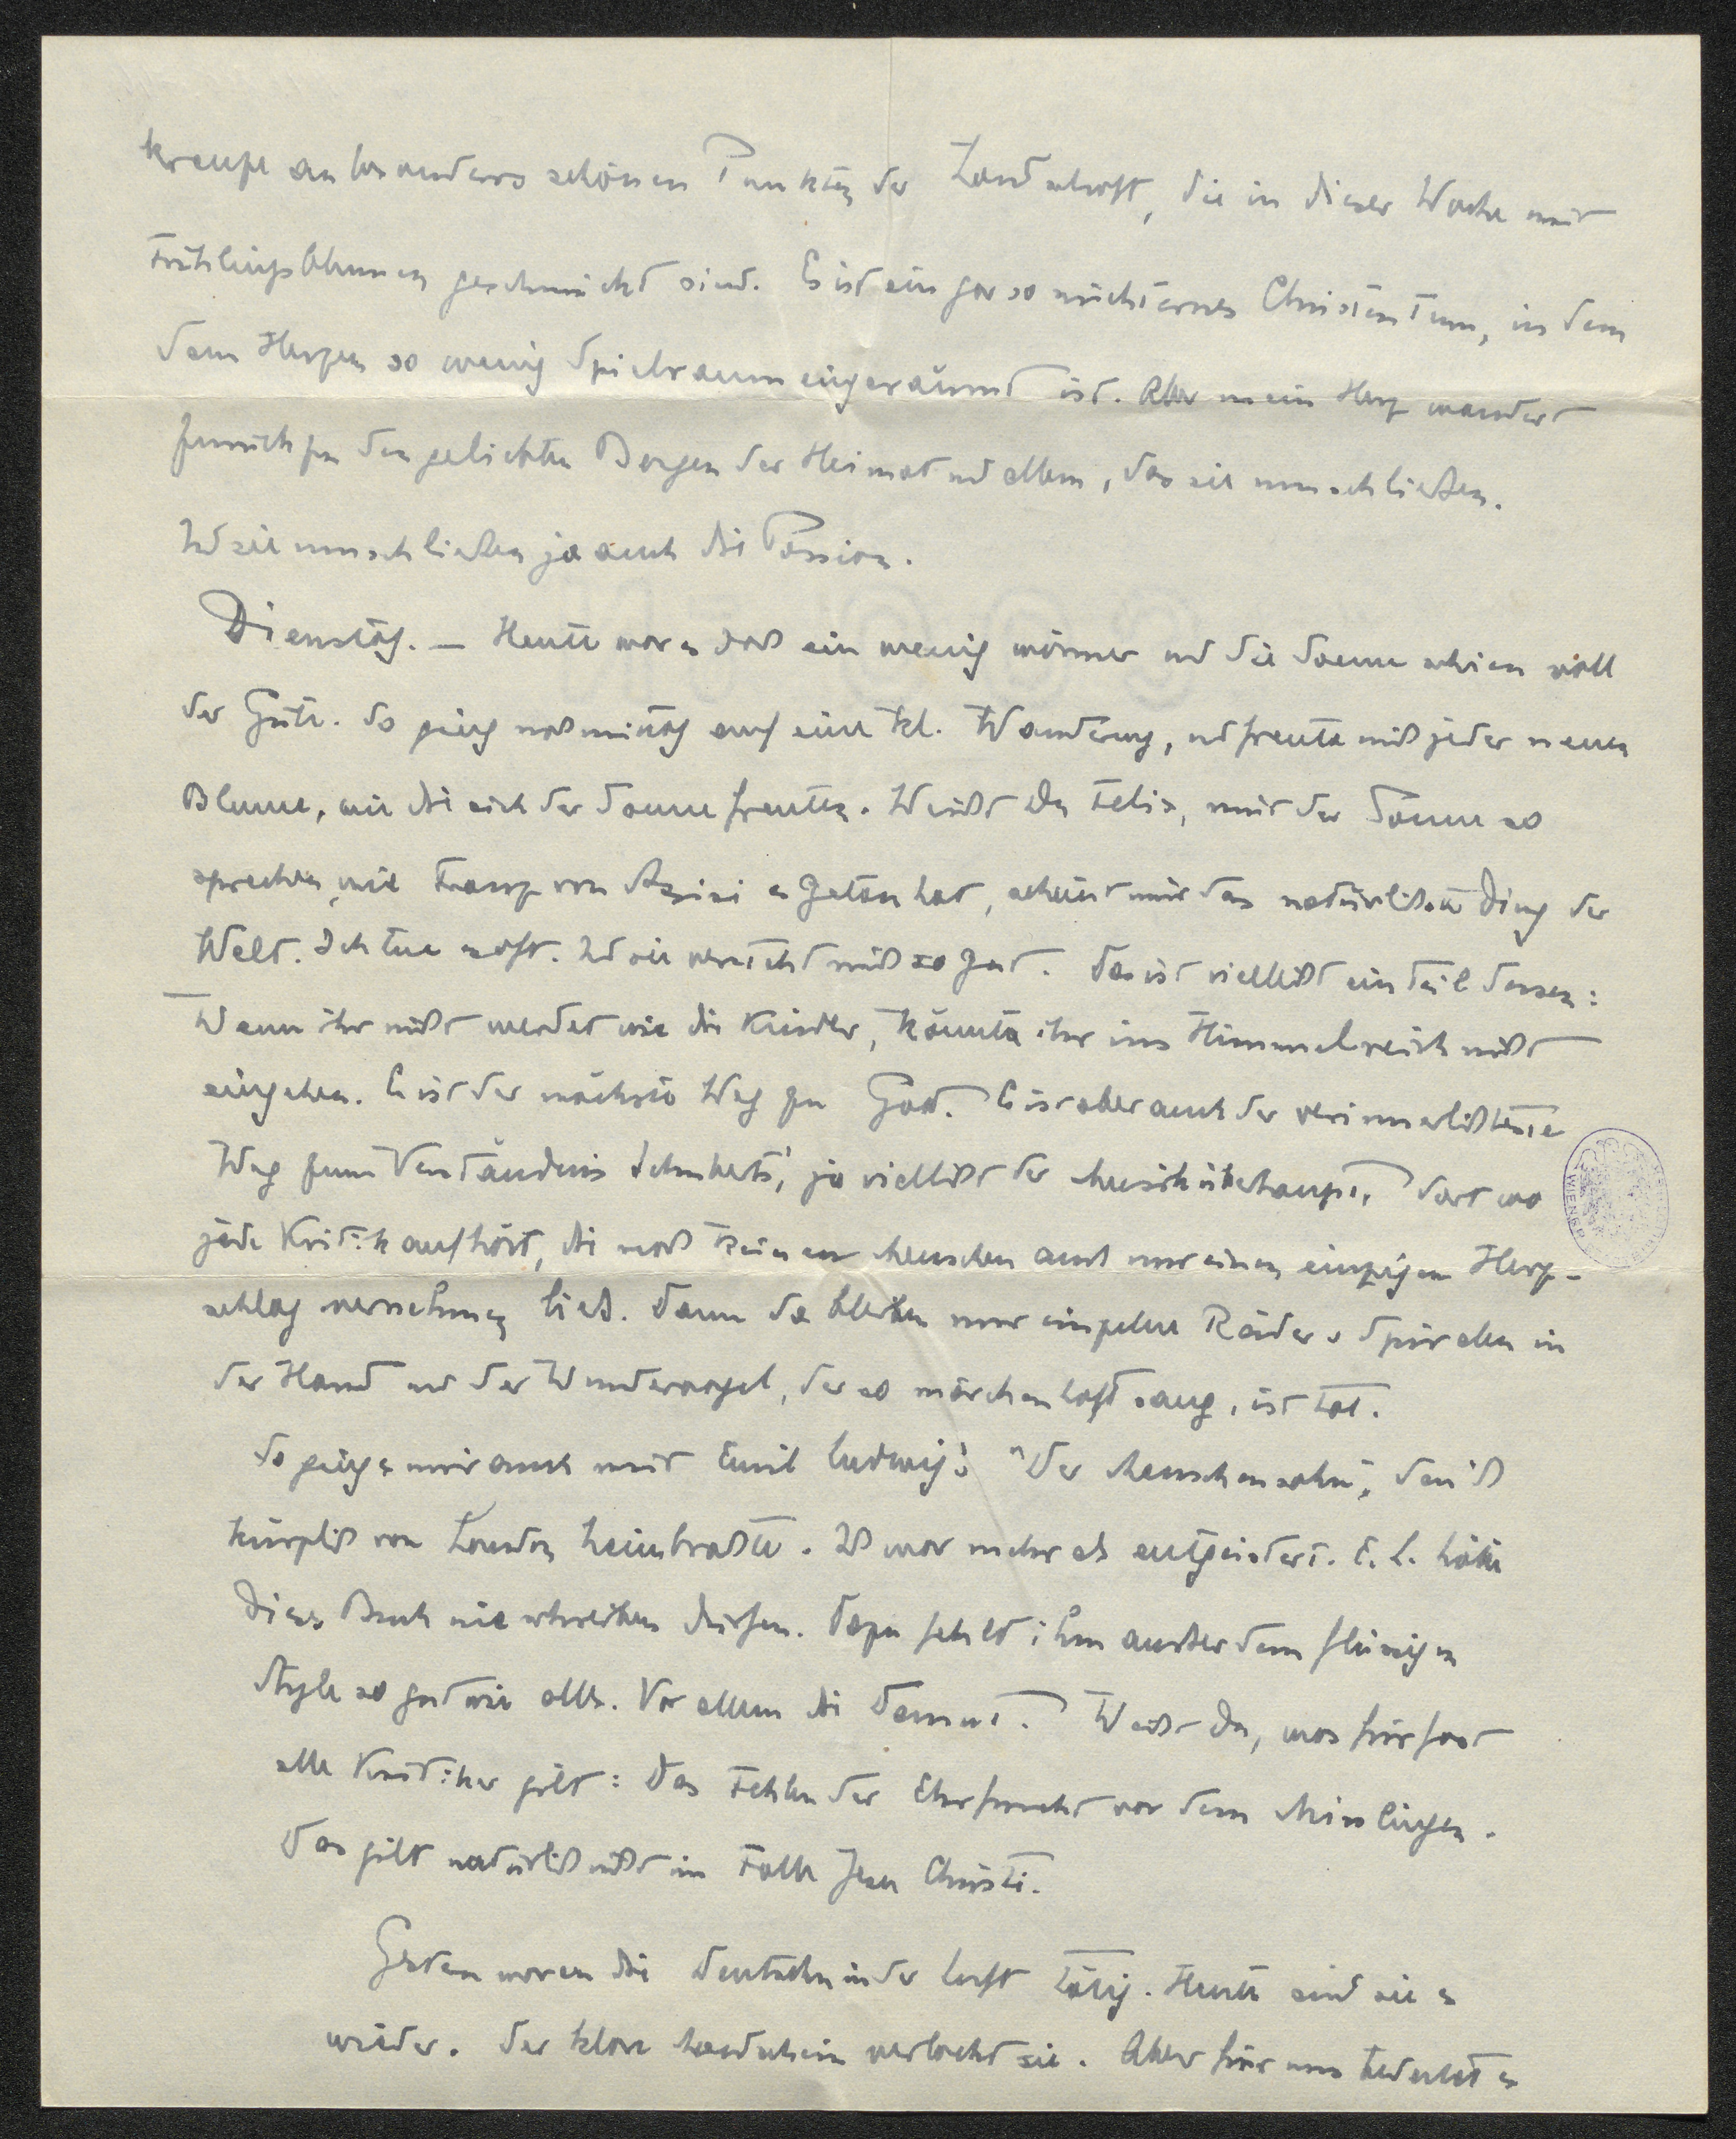 kreuze an besonders schönen Punkten der Landschaft, die in dieser Woche mit
Frühlingsblumen geschmückt sind. Es ist ein gar so nüchternes Christentum, in dem
dem Herzen so wenig Spielraum eingeräumt ist. Aber mein Herz wandert
zurück zu den geliebten Bergen der Heimat und allem, das sie umschließen.
Und sie umschließen ja auch die Passion.
Dienstag. — Heute war es doch ein wenig wärmer und die Sonne schien voll
der Güte. So ging nachmittag auf eine kl. Wanderung, und freute mich jeder neuen
Blume, wie die sich der Sonne freuten. Weißt Du Felix, mit der Sonne so
sprechen, wie Franz von Assisi es getan hat, scheint mir das natürlichste Ding der
Welt. Ich tue es oft. Und sie versteht mich so gut. Das ist vielleicht ein Teil dessen:
Wenn ihr nicht werdet wie die Kinder, könnte ihr ins Himmelreich nicht
eingehen. Es ist der nächste Weg zu Gott. Es ist aber auch der verinnerlichteste
Weg zum Verständnis Schuberts, ja vielleicht der Musik überhaupt. Dort wo
jede Kritik aufhört, die noch keinen Menschen auch nur einen einzigen Herz-
schlag vernehmen ließ. Denn da bleiben nur einzelne Räder u Spiralen in
der Hand und der Wundervogel, der so märchenhaft sang, ist tot.
So ging es mir auch mit Emil Ludwig's "Der Menschensohn", den ich
kürzlich von London heimbrachte. Ich war mehr als entgeistert. E. L. hätte
dieses Buch nie schreiben dürfen. Dazu fehlt ihm außer dem flüssigen
Style so gut wie alles. Vor allem die Demut. Weißt Du, was für fast
alle Kritiker gilt: Das Fehlen der Ehrfurcht vor dem Misslingen.
Das gilt natürlich nicht im Falle Jesu Christi.
Gestern waren die Deutschen in der Luft tätig. Heute sind sie es
wieder. Der klare Mondschein verlockt sie. Aber für uns bedeutet es
WIENER